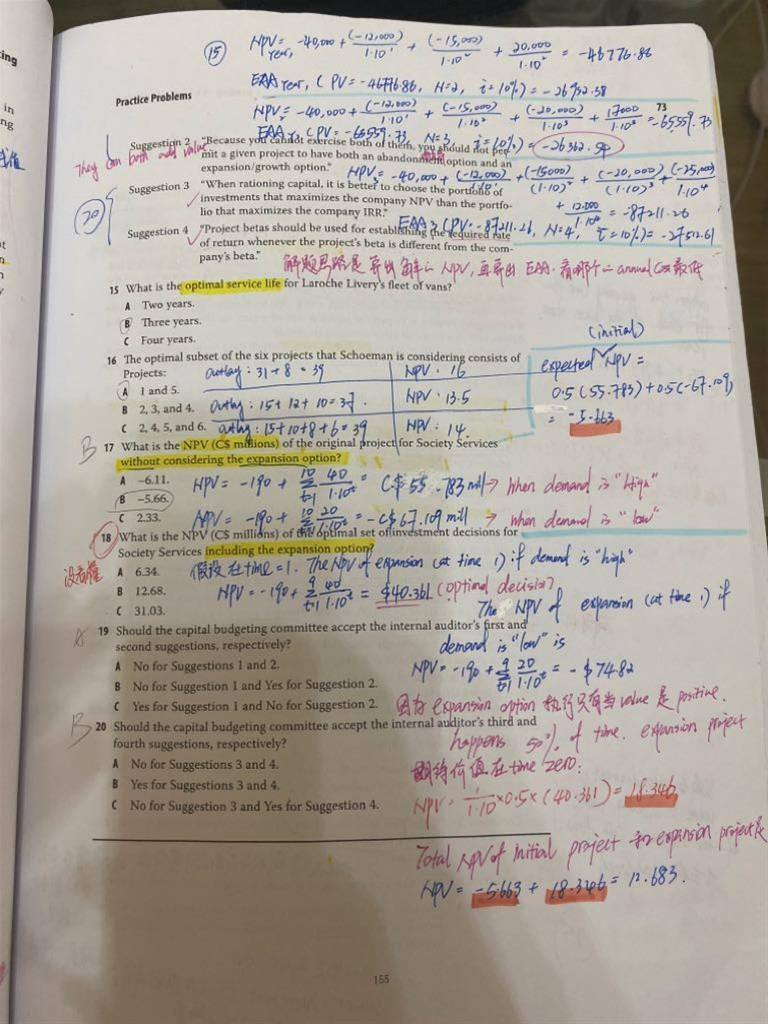 ⑮ NPV year₂ = -40,000 + (-12,000)/1.10¹ + (-15,000)/1.10² + 20,000/1.10² = -46776.86
EAA Year₂ ( PV = -46776.86, N=2, i=10%) = -26952.38
Practice Problems
73
NPV₃ = -40,000 + (-12,000)/1.10¹ + (-15,000)/1.10² + (-20,000)/1.10³ + 17000/1.10³ = -65559.73
EAA₃ (PV = -65559.73, N=3, i=10%) = -26362.54
Suggestion 2 "Because you cannot exercise both of them, you should not per-
mit a given project to have both an abandonment option and an
expansion/growth option."
They can both add value
NPV₃ = -40,000 + (-12,000)/1.10¹ + (-15000)/(1.10)² + (-20,000)/(1.10)³ + (-25,000)/1.10⁴
+ 12.000/1.10⁴ = -87211.26
Suggestion 3 "When rationing capital, it is better to choose the portfolio of
investments that maximizes the company NPV than the portfo-
lio that maximizes the company IRR."
⑳
EAA₃ (PV = -87211.26, N=4, i=10%) = -27512.61
Suggestion 4 "Project betas should be used for establishing the required rate
of return whenever the project's beta is different from the com-
pany's beta."
解题思路是算出每年 NPV, 再算出 EAA. 看哪个 annual cost 最低
15 What is the optimal service life for Laroche Livery's fleet of vans?
A Two years.
B Three years.
C Four years.
16 The optimal subset of the six projects that Schoeman is considering consists of
Projects:
A 1 and 5.
outlay: 31+8=39
NPV: 16
B 2, 3, and 4.
outlay: 15+12+10=37.
NPV: 13.5
C 2, 4, 5, and 6.
outlay: 15+10+8+6=39
NPV: 14
(initial)
expected NPV =
0.5(55.783)+0.5(-67.109)
= -5.663
B 17 What is the NPV (C$ millions) of the original project for Society Services
without considering the expansion option?
A −6.11.
B −5.66.
C 2.33.
NPV = -190 + Σ 10 t=1 40/1.10ᵗ = C$ 55.783 mill → when demand is "high"
NPV = -190 + Σ 10 t=1 20/1.10ᵗ = -C$67.109 mill → when demand is "low"
18 What is the NPV (C$ millions) of the optimal set of investment decisions for
Society Services including the expansion option?
A 6.34.
B 12.68.
C 31.03.
假设在time=1. The NPV of expansion (at time 1) if demand is "high"
NPV = -190 + Σ 9 t=1 40/1.10ᵗ = $40.361 (optimal decision)
The NPV of expansion (at time 1) if
demand is "low" is
NPV = -190 + Σ 9 t=1 20/1.10ᵗ = -$74.82
A 19 Should the capital budgeting committee accept the internal auditor's first and
second suggestions, respectively?
A No for Suggestions 1 and 2.
B No for Suggestion 1 and Yes for Suggestion 2.
C Yes for Suggestion 1 and No for Suggestion 2.
因为 expansion option 执行只有当 value 是 positive.
happens 50% of time. expansion project
期待价值在 time zero:
NPV = 1/1.10 × 0.5 × (40.361) = 18.346
B 20 Should the capital budgeting committee accept the internal auditor's third and
fourth suggestions, respectively?
A No for Suggestions 3 and 4.
B Yes for Suggestions 3 and 4.
C No for Suggestion 3 and Yes for Suggestion 4.
Total NPV of initial project 和 expansion project是
NPV = -5.663 + 18.346 = 12.683.
155